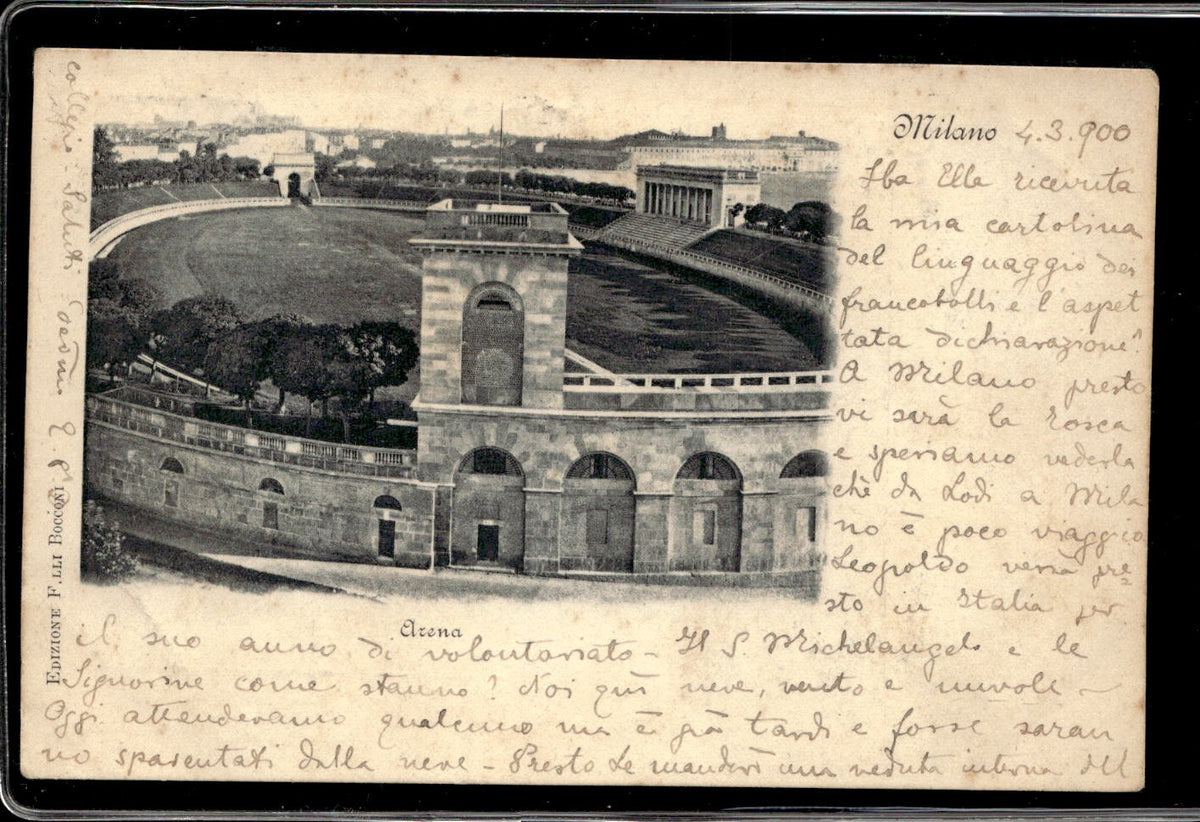 Milano 4.3.900
Ha Ella ricevuta
la mia cartolina
del linguaggio dei
francobolli e l'aspet
tata dichiarazione?
A Milano presto
vi sarà la Tosca
e speriamo vederla
chè da Lodi a Mila
no è poco viaggio
Leopoldo verrà pre=
sto in Italia per
Arena
il suo anno di volontariato - Il S. Michelangelo e le
Signorine come stanno? Noi qui neve, vento e nuvole -
Oggi attendevamo qualcuno ma è già tardi e forse saran
no spaventati dalla neve - Presto Le manderò una veduta interna del
collegio - Saluti
EDIZIONE F.LLI BOCCONI